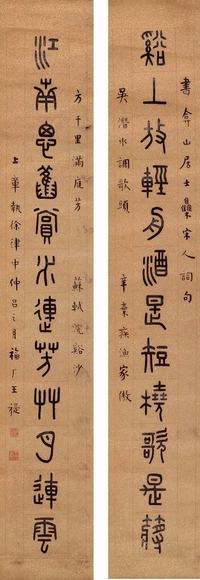 書弇山居士集宋人詞句
谿上放輕舟酒是短橈歌是槳
吳潛水調歌頭 辛棄疾漁家傲
方千里滿庭芳 蘇軾浣谿沙
江南思舊賞水連芳艸月連雲
上章執徐律中仲呂之月福厂王禔